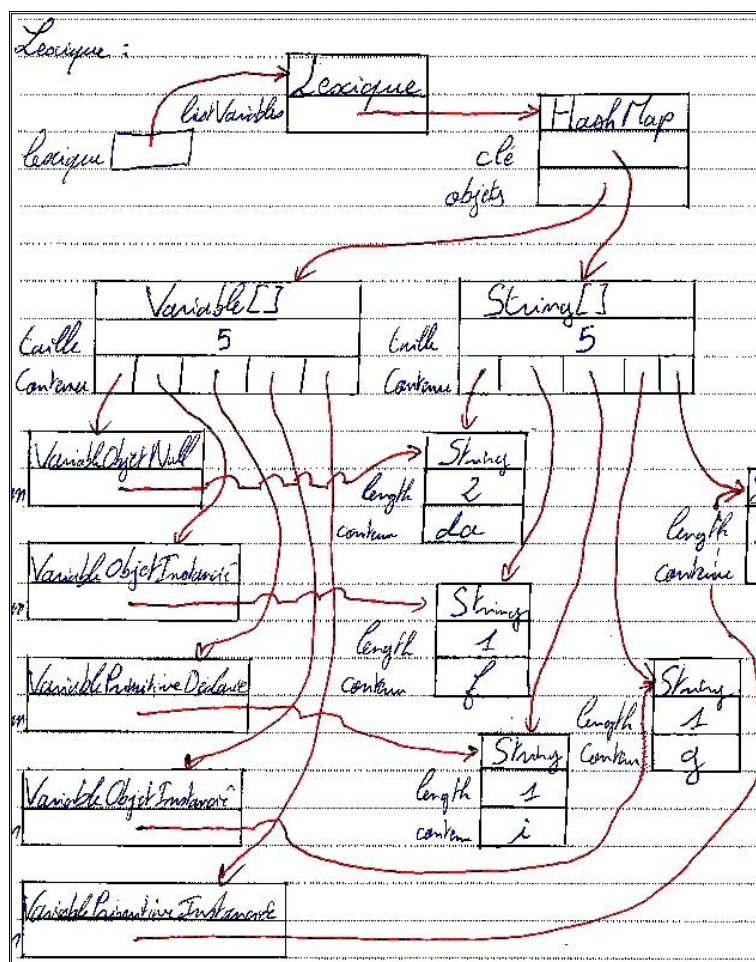 Lexique :
Lexique
listVariables
HashMap
lexique
clé
objets
Variable[]
String[]
taille
5
taille
5
Contenu
Contenu
VariableObjetNull
String
length
2
contenu
da
length
contenu
VariableObjetInstancié
String
length
1
contenu
f
VariablePrimitiveDéclarée
String
length
1
contenu
g
String
length
1
contenu
i
VariableObjetInstancié
VariablePrimitiveInstanciée